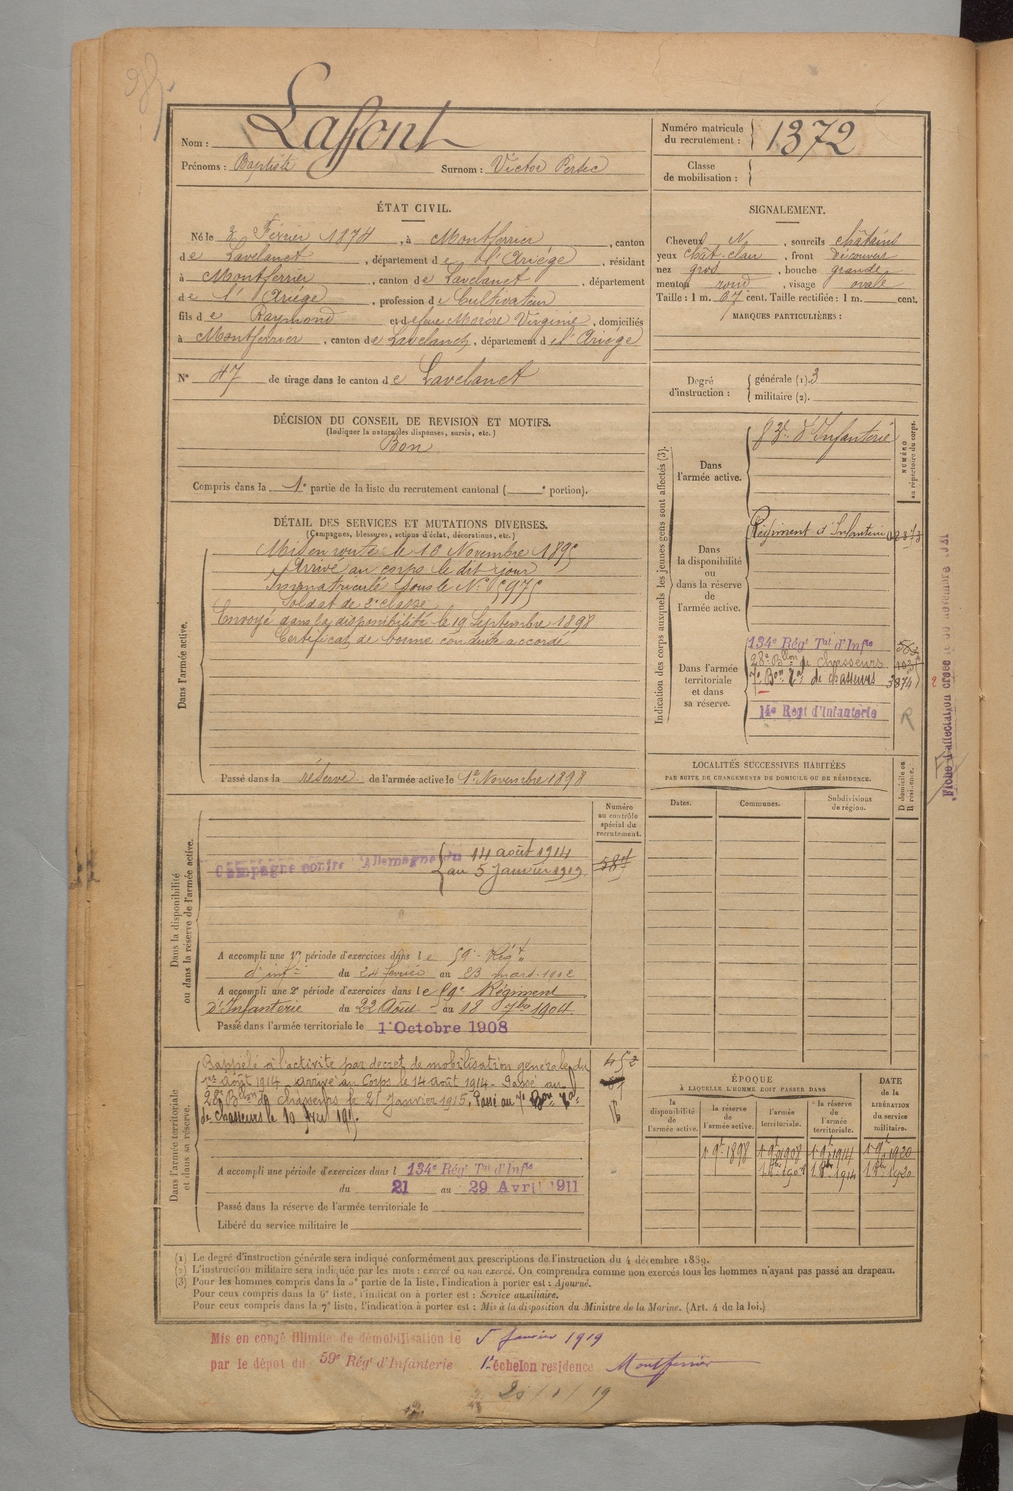 Nom : Laffont
Prénoms : Baptiste Surnom : Victor
Numéro matricule du recrutement : 1372
Classe de mobilisation :
ÉTAT CIVIL.
Né le 2 Février 1874, à Montferrier, canton
de Lavelanet, département de l'Ariége, résidant
à Montferrier, canton de Lavelanet, département
de l'Ariége, profession de Cultivateur
fils de Raymond et de Virginie, domiciliés
à Montferrier, canton de Lavelanet, département de l'Ariége
N° 47 de tirage dans le canton de Lavelanet
SIGNALEMENT.
Cheveux N, sourcils châtains
yeux chât. clair, front découvert
nez gros, bouche grande
menton rond, visage ovale
Taille : 1 m. 67 cent. Taille rectifiée : 1 m. cent.
MARQUES PARTICULIÈRES :
Degré d'instruction : générale (1). 3
militaire (2).
DÉCISION DU CONSEIL DE REVISION ET MOTIFS.
(Indiquer la nature des dispenses, sursis, etc.)
Bon
Compris dans la 1e partie de la liste du recrutement cantonal ( e portion).
DÉTAIL DES SERVICES ET MUTATIONS DIVERSES.
(Campagnes, blessures, actions d'éclat, décorations, etc.)
Dans l'armée active.
Mis en route le 10 Novembre 1895
Arrivé au corps le dit jour
Immatriculé sous le N°
Soldat de 2e classe
Envoyé dans la disponibilité le 19 Septembre 1898
Certificat de bonne conduite accordé
Passé dans la réserve de l'armée active le 1er Novembre 1898
Indication des corps auxquels les jeunes gens sont affectés (3).
NUMÉRO au répertoire du corps.
Dans l'armée active.
d'Infanterie
Dans la disponibilité ou dans la réserve de l'armée active.
Régiment d'Infanterie
Dans l'armée territoriale et dans sa réserve.
134e Régt Tal d'Infie
28e Bllon de chasseurs
7e Bon Tal de chasseurs 3874
14e Regt d'Infanterie
R
LOCALITÉS SUCCESSIVES HABITÉES
PAR SUITE DE CHANGEMENTS DE DOMICILE OU DE RÉSIDENCE.
Dates. Communes. Subdivisions de région. D domicile ou R résidence.
Dans la disponibilité ou dans la réserve de l'armée active.
Numéro au contrôle spécial du recrutement.
Campagne contre l'Allemagne du 14 août 1914
au 5 Janvier 1919
A accompli une 1re période d'exercices dans le 59e Régt
d'infie du 24 février au 23 mars 1902
A accompli une 2e période d'exercices dans le 59e Régiment
d'Infanterie du 22 Août au 18 7bre 1904
Passé dans l'armée territoriale le 1er Octobre 1908
Dans l'armée territoriale et dans sa réserve.
Rappelé à l'activité par decret de mobilisation generale du
1er août 1914 arrivé au Corps le 14 août 1914. Passé au
28e Bllon de chasseurs le 21 Janvier 1915. Passé au 7e Bon Tal
de chasseurs le 10
A accompli une période d'exercices dans l 134e Régt Tal d'Infie
du 21 au 29 Avril 1911
Passé dans la réserve de l'armée territoriale le
Libéré du service militaire le
ÉPOQUE
À LAQUELLE L'HOMME DOIT PASSER DANS
la disponibilité de l'armée active. la réserve de l'armée active. l'armée territoriale. la réserve de l'armée territoriale.
DATE DE LA LIBÉRATION du service militaire.
(1) Le degré d'instruction générale sera indiqué conformément aux prescriptions de l'instruction du 4 décembre 1889.
(2) L'instruction militaire sera indiquée par les mots : exercé ou non exercé. On comprendra comme non exercés tous les hommes n'ayant pas passé au drapeau.
(3) Pour les hommes compris dans la 5e partie de la liste, l'indication à porter est : Ajourné.
Pour ceux compris dans la 6e liste, l'indication à porter est : Service auxiliaire.
Pour ceux compris dans la 7e liste, l'indication à porter est : Mis à la disposition du Ministre de la Marine. (Art. 4 de la loi.)
Mis en congé illimité de démobilisation le 5 Janvier 1919
par le dépot du 59e Régt d'Infanterie 1er échelon residence Montferrier